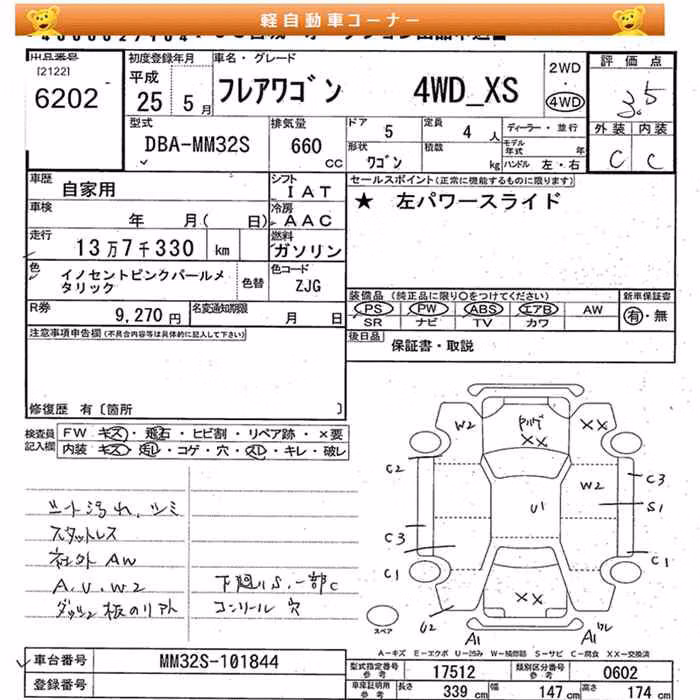 軽自動車コーナー
出品番号
[2122]
6202
初度登録年月
平成
25 5月
車名・グレード
フレアワゴン 4WD_XS
2WD
・
4WD
評価点
3.5
外装 内装
C C
型式
DBA-MM32S
排気量
660
CC
ドア
5
定員
4 人
形状
ワゴン
積数
kg
ディーラー・並行
モデル年式 年
ハンドル 左・右
車歴
自家用
シフト
IAT
車検
年 月( 日)
冷房
AAC
走行
13万7千330 km
燃料
ガソリン
色
イノセントピンクパールメタリック
色替
色コード
ZJG
R券
9,270 円
名変通知期限
月 日
セールスポイント(正常に機能するものに限ります)
★ 左パワースライド
装備品 (純正品に限り○をつけてください)
PS PW ABS エアB AW
SR ナビ TV カワ
新車保証書
有・無
後日品
保証書・取説
注意事項申告欄(不具合内容等は具体的に記入して下さい)
修復歴 有〔箇所 〕
検査員
記入欄
FW キズ・飛石・ヒビ割・リペア跡・×要
内装 キズ・汚レ・コゲ・穴・スレ・キレ・破レ
シート汚れ、シミ
スタットレス
社外AW
A.U.W2
下廻りS.一部C
コンソール穴
W2
XX
XX
C2
W2
C3
S1
U1
C3
C1
C1
XX
U2
A1
A1
スペア
A-キズ E-エクボ U-凹み W-補修跡 S-サビ C-腐食 XX-交換済
車台番号
MM32S-101844
登録番号
型式指定番号
参考
17512
類別区分番号
参考
0602
車庫証明用
参考
長さ
339 cm
幅
147 cm
高さ
174 cm